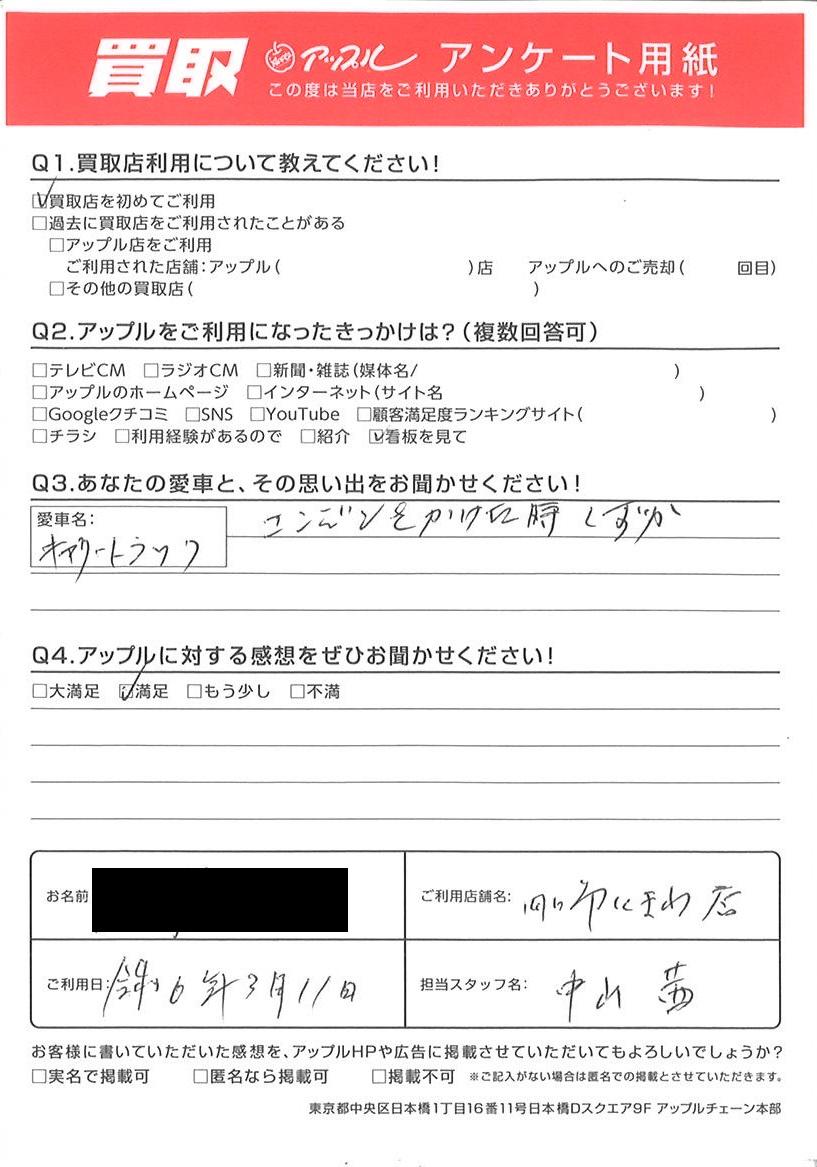 買取 アップル アンケート用紙
この度は当店をご利用いただきありがとうございます!
Q1.買取店利用について教えてください!
☑買取店を初めてご利用
□過去に買取店をご利用されたことがある
□アップル店をご利用
ご利用された店舗:アップル( )店 アップルへのご売却( 回目)
□その他の買取店( )
Q2.アップルをご利用になったきっかけは?(複数回答可)
□テレビCM □ラジオCM □新聞・雑誌(媒体名/ )
□アップルのホームページ □インターネット(サイト名 )
□Googleクチコミ □SNS □YouTube □顧客満足度ランキングサイト( )
□チラシ □利用経験があるので □紹介 ☑看板を見て
Q3.あなたの愛車と、その思い出をお聞かせください!
愛車名:
キャリートラック
エンジンをかけた時 しずか
Q4.アップルに対する感想をぜひお聞かせください!
□大満足 ☑満足 □もう少し □不満
お名前
ご利用店舗名: 店
ご利用日: 令和6年3月11日
担当スタッフ名: 中山 茜
お客様に書いていただいた感想を、アップルHPや広告に掲載させていただいてもよろしいでしょうか?
□実名で掲載可 □匿名なら掲載可 □掲載不可 ※ご記入がない場合は匿名での掲載とさせていただきます。
東京都中央区日本橋1丁目16番11号日本橋Dスクエア9F アップルチェーン本部